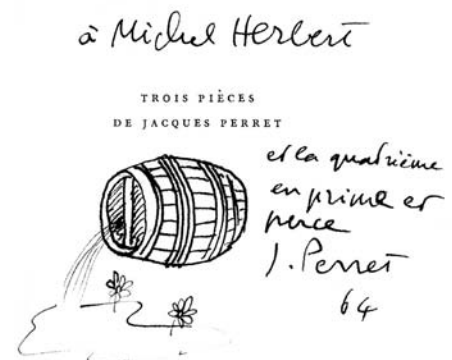 à Michel Herbert
TROIS PIÈCES
DE JACQUES PERRET
et la quatrième
en prime et
perce
J. Perret
64